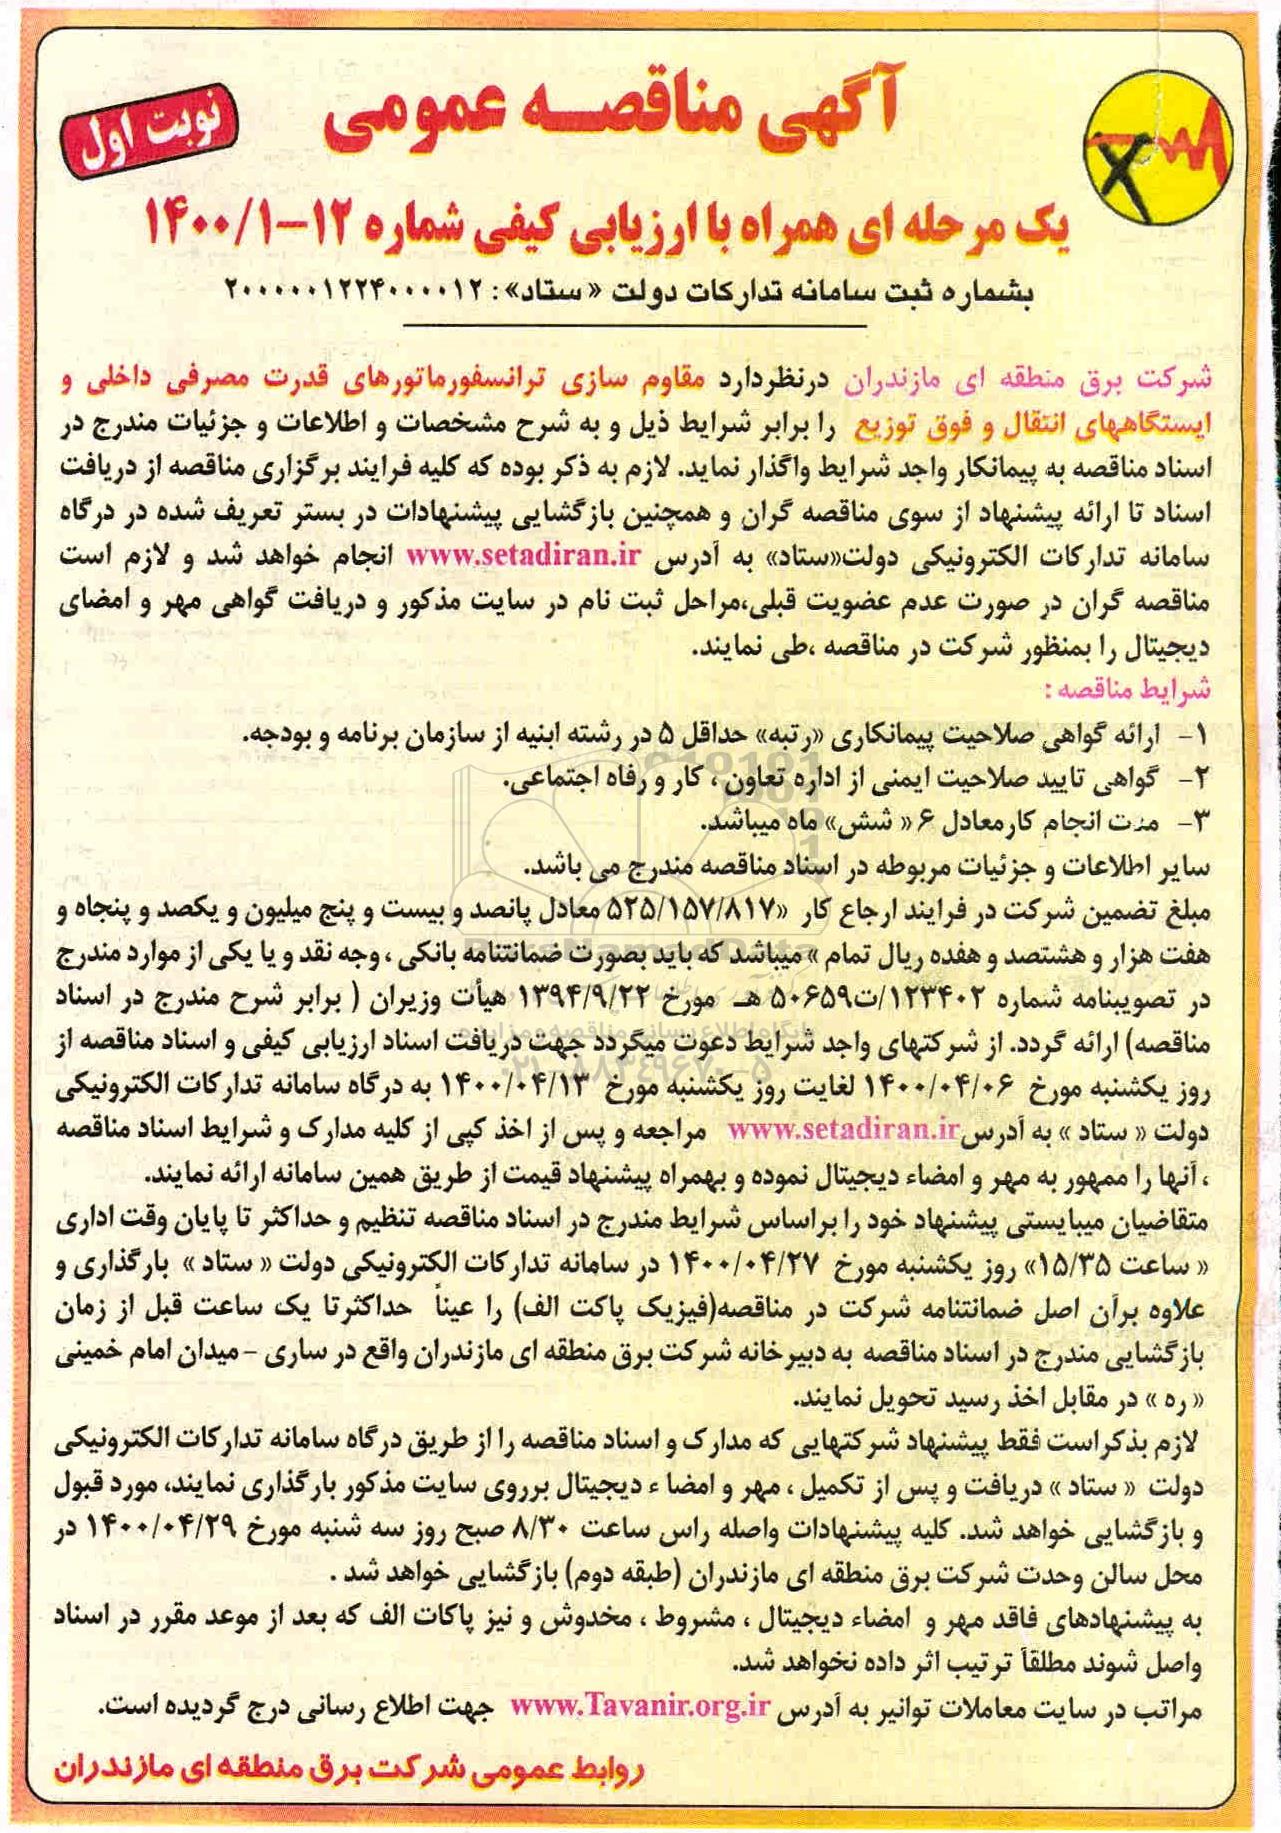 آگهی مناقصه عمومی
نوبت اول
یک مرحله ای همراه با ارزیابی کیفی شماره ۱۲-۱۴۰۰/۱
بشماره ثبت سامانه تدارکات دولت « ستاد»: ۲۰۰۰۰۰۱۲۲۴۰۰۰۰۱۲
شرکت برق منطقه ای مازندران درنظردارد مقاوم سازی ترانسفورماتورهای قدرت مصرفی داخلی و
ایستگاههای انتقال و فوق توزیع را برابر شرایط ذیل و به شرح مشخصات و اطلاعات و جزئیات مندرج در
اسناد مناقصه به پیمانکار واجد شرایط واگذار نماید. لازم به ذکر بوده که کلیه فرایند برگزاری مناقصه از دریافت
اسناد تا ارائه پیشنهاد از سوی مناقصه گران و همچنین بازگشایی پیشنهادات در بستر تعریف شده در درگاه
سامانه تدارکات الکترونیکی دولت«ستاد» به آدرس www.setadiran.ir انجام خواهد شد و لازم است
مناقصه گران در صورت عدم عضویت قبلی،مراحل ثبت نام در سایت مذکور و دریافت گواهی مهر و امضای
دیجیتال را بمنظور شرکت در مناقصه ،طی نمایند.
شرایط مناقصه :
۱- ارائه گواهی صلاحیت پیمانکاری «رتبه» حداقل ۵ در رشته ابنیه از سازمان برنامه و بودجه.
۲- گواهی تایید صلاحیت ایمنی از اداره تعاون ، کار و رفاه اجتماعی.
۳- مدت انجام کارمعادل ۶« شش» ماه میباشد.
سایر اطلاعات و جزئیات مربوطه در اسناد مناقصه مندرج می باشد.
مبلغ تضمین شرکت در فرایند ارجاع کار «۵۲۵/۱۵۷/۸۱۷ معادل پانصد و بیست و پنج میلیون و یکصد و پنجاه و
هفت هزار و هشتصد و هفده ریال تمام » میباشد که باید بصورت ضمانتنامه بانکی ، وجه نقد و یا یکی از موارد مندرج
در تصویبنامه شماره ۱۲۳۴۰۲/ت۵۰۶۵۹ هـ مورخ ۱۳۹۴/۹/۲۲ هیأت وزیران ( برابر شرح مندرج در اسناد
مناقصه) ارائه گردد. از شرکتهای واجد شرایط دعوت میگردد جهت دریافت اسناد ارزیابی کیفی و اسناد مناقصه از
روز یکشنبه مورخ ۱۴۰۰/۰۴/۰۶ لغایت روز یکشنبه مورخ ۱۴۰۰/۰۴/۱۳ به درگاه سامانه تدارکات الکترونیکی
دولت « ستاد » به آدرسwww.setadiran.ir مراجعه و پس از اخذ کپی از کلیه مدارک و شرایط اسناد مناقصه
، آنها را ممهور به مهر و امضاء دیجیتال نموده و بهمراه پیشنهاد قیمت از طریق همین سامانه ارائه نمایند.
متقاضیان میبایستی پیشنهاد خود را براساس شرایط مندرج در اسناد مناقصه تنظیم و حداکثر تا پایان وقت اداری
« ساعت ۱۵/۳۵» روز یکشنبه مورخ ۱۴۰۰/۰۴/۲۷ در سامانه تدارکات الکترونیکی دولت « ستاد » بارگذاری و
علاوه برآن اصل ضمانتنامه شرکت در مناقصه(فیزیک پاکت الف) را عیناً حداکثرتا یک ساعت قبل از زمان
بازگشایی مندرج در اسناد مناقصه به دبیرخانه شرکت برق منطقه ای مازندران واقع در ساری - میدان امام خمینی
« ره » در مقابل اخذ رسید تحویل نمایند.
لازم بذکراست فقط پیشنهاد شرکتهایی که مدارک و اسناد مناقصه را از طریق درگاه سامانه تدارکات الکترونیکی
دولت « ستاد » دریافت و پس از تکمیل ، مهر و امضا ء دیجیتال برروی سایت مذکور بارگذاری نمایند، مورد قبول
و بازگشایی خواهد شد. کلیه پیشنهادات واصله راس ساعت ۸/۳۰ صبح روز سه شنبه مورخ ۱۴۰۰/۰۴/۲۹ در
محل سالن وحدت شرکت برق منطقه ای مازندران (طبقه دوم) بازگشایی خواهد شد .
به پیشنهادهای فاقد مهر و امضاء دیجیتال ، مشروط ، مخدوش و نیز پاکات الف که بعد از موعد مقرر در اسناد
واصل شوند مطلقاً ترتیب اثر داده نخواهد شد.
مراتب در سایت معاملات توانیر به آدرس www.Tavanir.org.ir جهت اطلاع رسانی درج گردیده است.
روابط عمومی شرکت برق منطقه ای مازندران